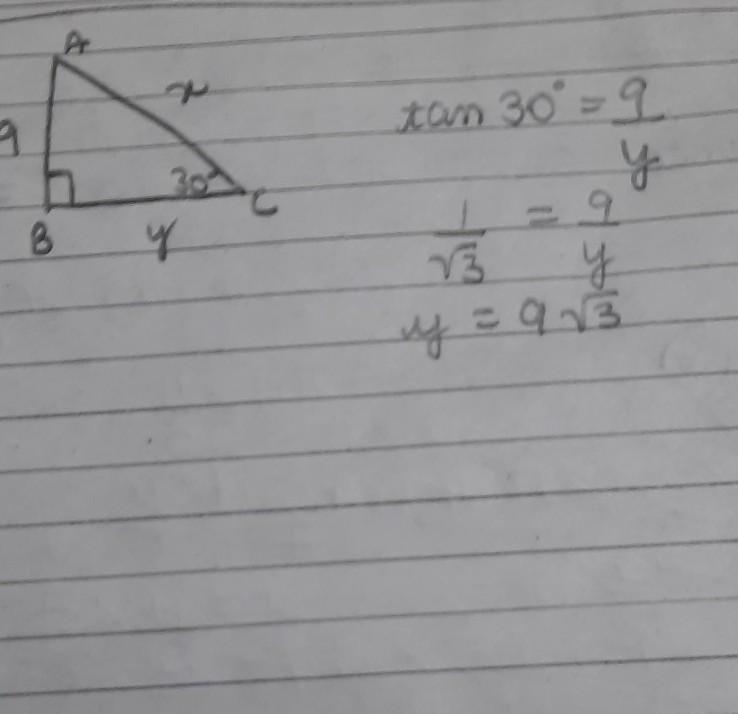 A
x
9
30°
B
y
C
tan 30° = 9/y
1/√3 = 9/y
y = 9√3